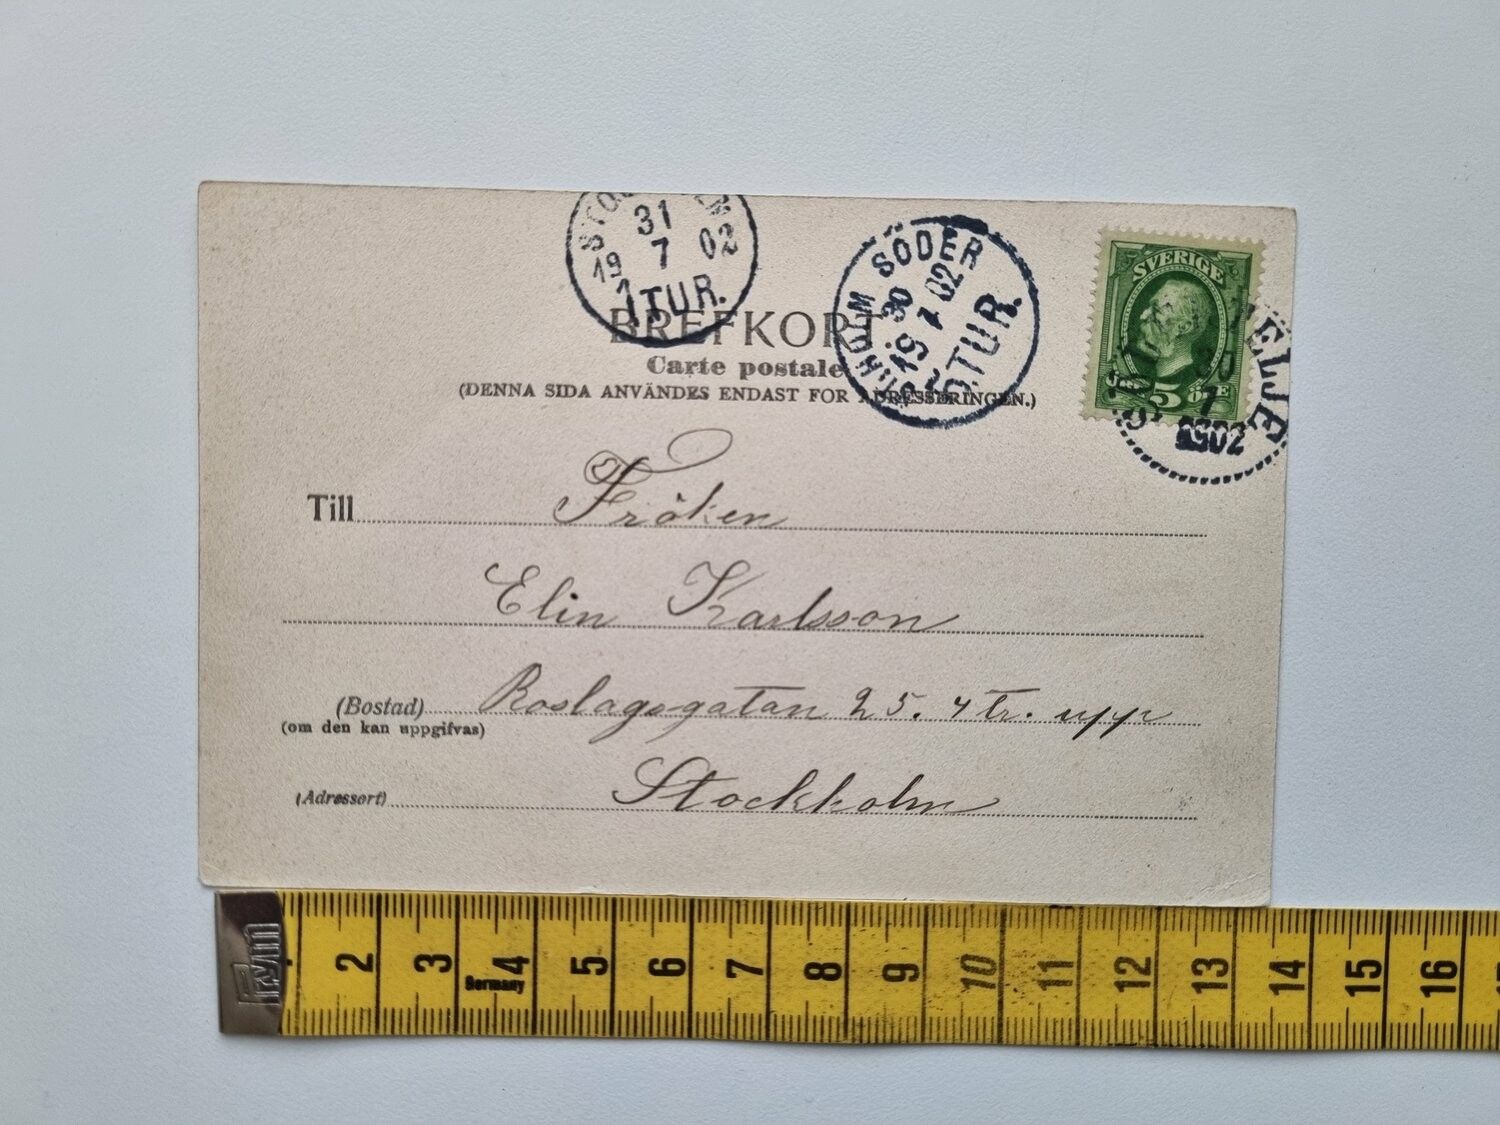 31
19 7 02
1.TUR.
STHOLM SÖDER
30
19 7 02
5.TUR.
SVERIGE
5 ÖRE
TELJE
30
7
1902
BREFKORT
Carte postale
(DENNA SIDA ANVÄNDES ENDAST FOR ADRESSERINGEN.)
Till Fröken
Elin Karlsson
(Bostad) Roslagsgatan 25. 4 tr. upp
(om den kan uppgifvas)
(Adressort) Stockholm
2 3 4 5 6 7 8 9 10 11 12 13 14 15 16
Germany